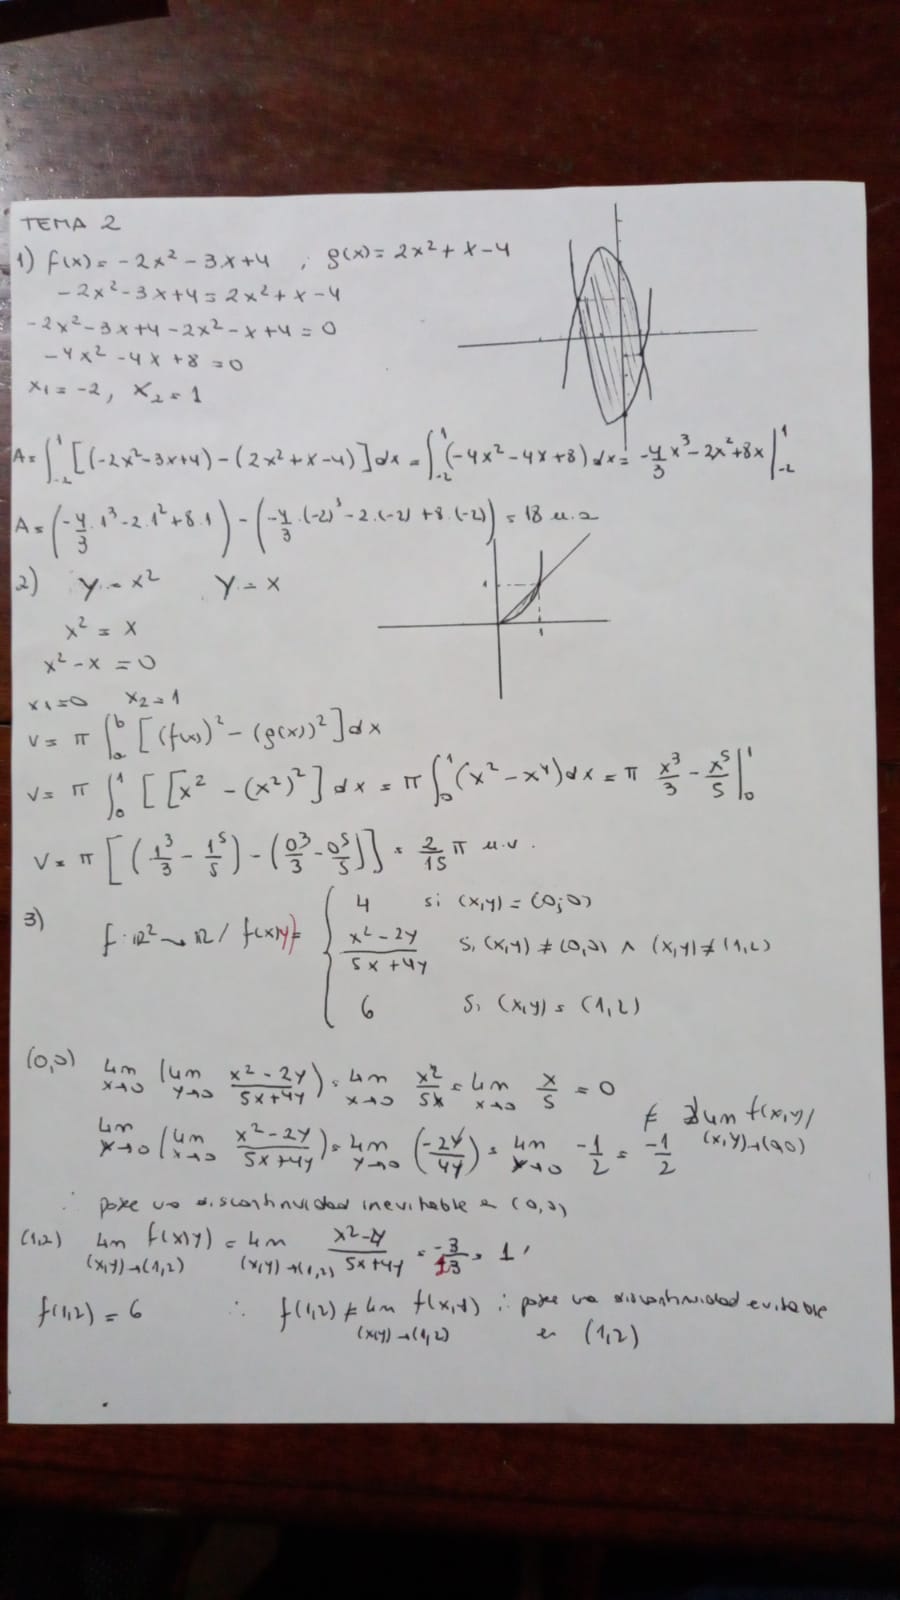 TEMA 2
1) f(x) = -2x² - 3x + 4 , g(x) = 2x² + x - 4
-2x² - 3x + 4 = 2x² + x - 4
-2x² - 3x + 4 - 2x² - x + 4 = 0
-4x² - 4x + 8 = 0
x₁ = -2, x₂ = 1
A = ∫₋₂¹ [(-2x² - 3x + 4) - (2x² + x - 4)] dx = ∫₋₂¹ (-4x² - 4x + 8) dx = -4/3 x³ - 2x² + 8x |₋₂¹
A = (-4/3 . 1³ - 2 . 1² + 8 . 1) - (-4/3 . (-2)³ - 2 . (-2) + 8 . (-2)) = 18 u.a
2) y = x² y = x
1
1
x² = x
x² - x = 0
x₁ = 0 x₂ = 1
V = π ∫ₐᵇ [(f(x))² - (g(x))²] dx
V = π ∫₀¹ [[x² - (x²)²] dx = π ∫₀¹ (x² - x⁴) dx = π x³/3 - x⁵/5 |₀¹
V = π [(1³/3 - 1⁵/5) - (0³/3 - 0⁵/5)] = 2/15 π u.v.
3) f: ℝ² → ℝ / f(x,y) = { 4 si (x,y) = (0;0)
x² - 2y / 5x + 4y si (x,y) ≠ (0,0) ∧ (x,y) ≠ (1,2)
6 si (x,y) = (1,2)
(0,0) lim x→0 (lim y→0 x² - 2y / 5x + 4y) = lim x→0 x²/5x = lim x→0 x/5 = 0
lim y→0 (lim x→0 x² - 2y / 5x + 4y) = lim y→0 (-2y/4y) = lim y→0 -1/2 = -1/2 ≠ ∄ lim f(x,y) / (x,y)→(0,0)
∴ posee una discontinuidad inevitable en (0,0)
(1,2) lim (x,y)→(1,2) f(x,y) = lim (x,y)→(1,2) x² - 2y / 5x + 4y = -3/13 = 1
f(1,2) = 6 ∴ f(1,2) ≠ lim (x,y)→(1,2) f(x,y) ∴ posee una discontinuidad evitable
en (1,2)